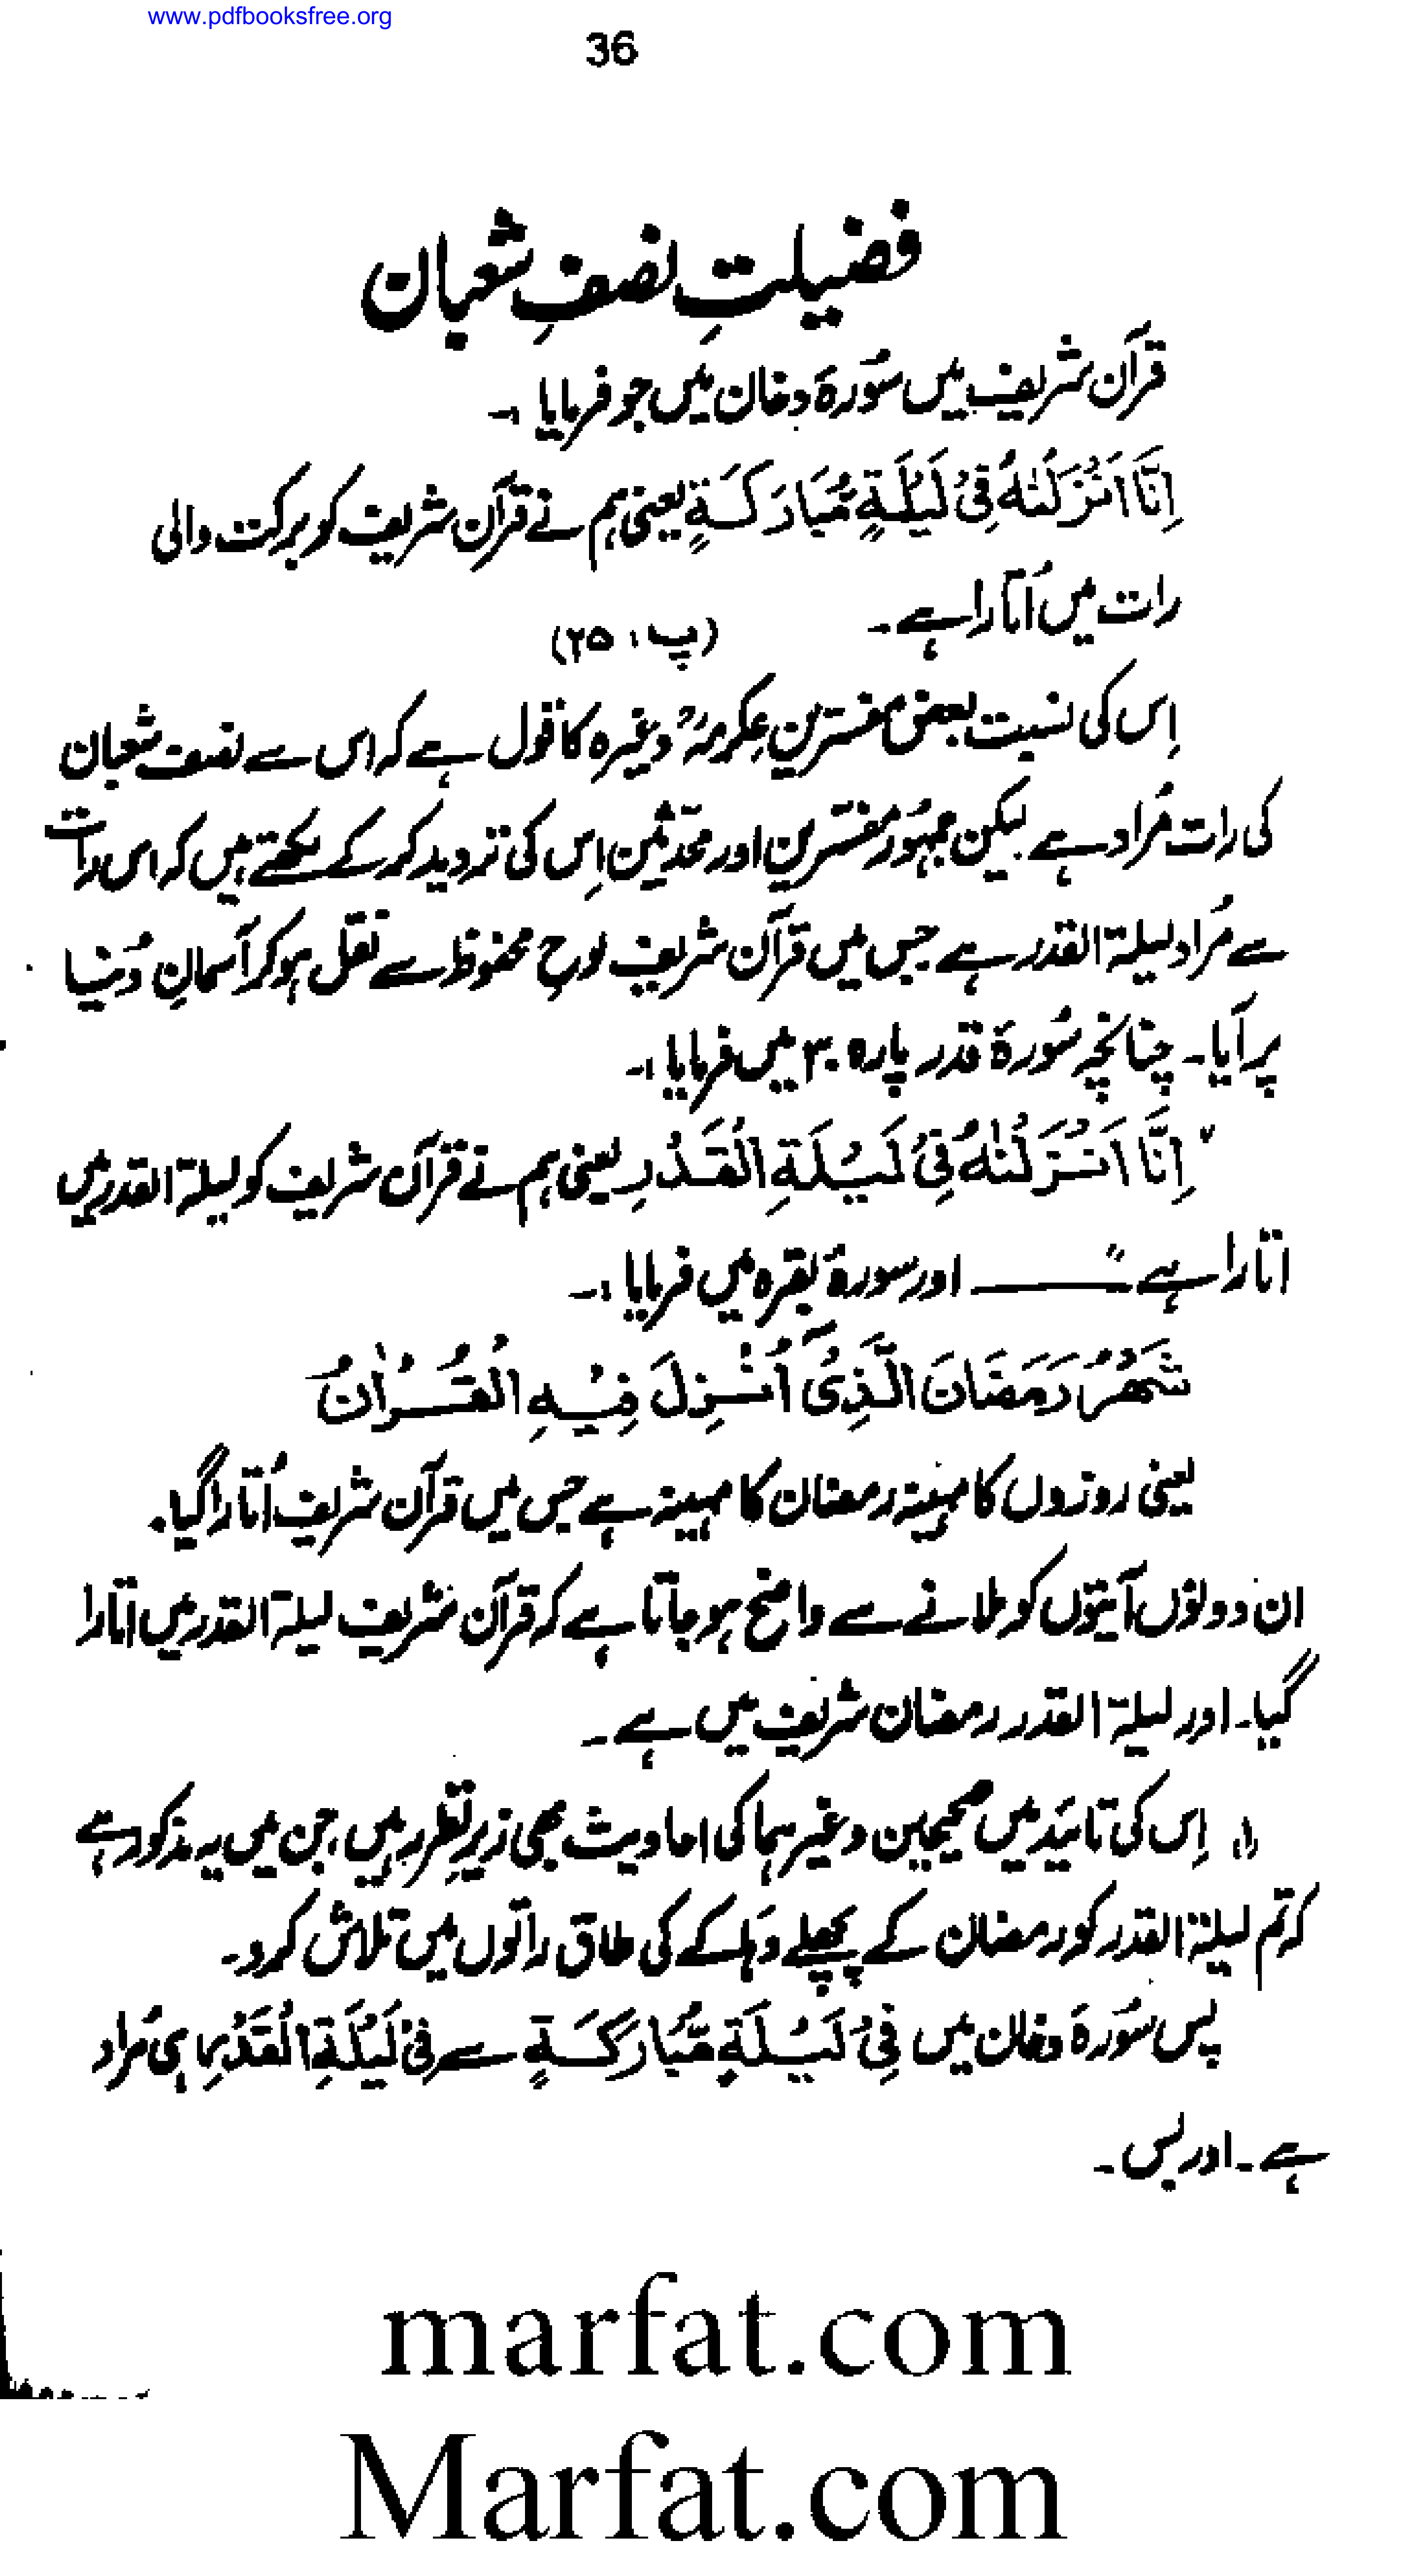 www.pdfbooksfree.org
36
فضیلتِ نصفِ شعبان
قرآن شریف میں سُورۂ دخان میں جو فرمایا :-
اِنَّا اَنْزَلْنٰهُ فِیْ لَیْلَةٍ مُّبَارَکَةٍ یعنی ہم نے قرآن شریف کو برکت والی
رات میں اُتارا ہے ۔ (پ ، ۲۵)
اِس کی نسبت بعض مفسّرین عِکرمہؒ وغیرہ کا قول ہے کہ اس سے نصف شعبان
کی رات مُراد ہے لیکن جمہُور مفسّرین اور محدّثین اِس کی تردید کر کے لکھتے ہیں کہ اس رات
سے مُراد لیلۃ القدر ہے جس میں قرآن شریف لوحِ محفوظ سے نقل ہوکر آسمانِ دُنیا
پر آیا۔ چنانچہ سُورۂ قدر پارہ ۳۰ میں فرمایا :-
"اِنَّا اَنْزَلْنٰهُ فِیْ لَیْلَةِ الْقَدْرِ یعنی ہم نے قرآن شریف کو لیلۃ القدر میں
اتارا ہے" ——— اور سورۂ بقرہ میں فرمایا :-
شَهْرُ رَمَضَانَ الَّذِیْٓ اُنْزِلَ فِیْهِ الْقُرْاٰنُ
یعنی روزوں کا مہینہ رمضان کا مہینہ ہے جس میں قرآن شریف اُتارا گیا۔
ان دونوں آیتوں کو ملانے سے واضح ہو جاتا ہے کہ قرآن شریف لیلۃ القدر میں اتارا
گیا۔ اور لیلۃ القدر رمضان شریف میں ہے ۔
(۱) اِس کی تائید میں صحیحین وغیرہما کی احادیث بھی زیرِ نظر رہیں، جن میں یہ مذکور ہے
کہ تم لیلۃ القدر کو رمضان کے پچھلے دَہاکے کی طاق راتوں میں تلاش کرو۔
پس سُورۂ دخان میں فِیْ لَیْلَةٍ مُّبَارَکَةٍ سے فِیْ لَیْلَةِ الْقَدْرِ ہی مُراد
ہے ۔ اور بس ۔
marfat.com
Marfat.com